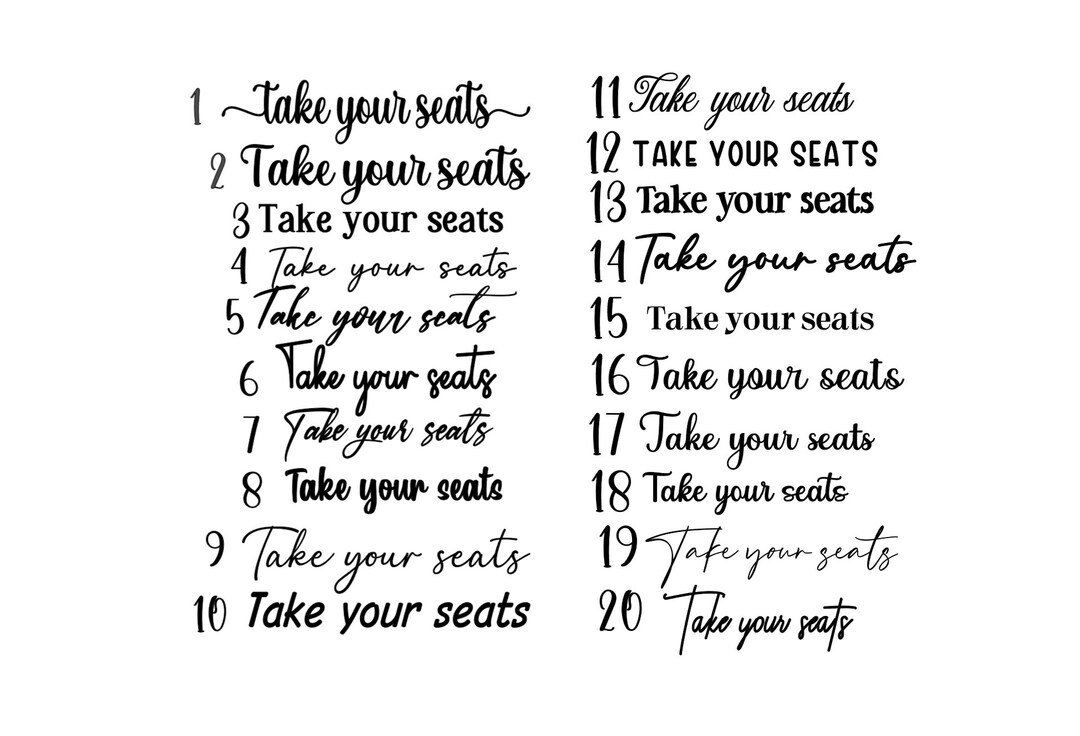 1 take your seats
2 Take your seats
3 Take your seats
4 Take your seats
5 Take your seats
6 Take your seats
7 Take your seats
8 Take your seats
9 Take your seats
10 Take your seats
11 Take your seats
12 TAKE YOUR SEATS
13 Take your seats
14 Take your seats
15 Take your seats
16 Take your seats
17 Take your seats
18 Take your seats
19 Take your seats
20 Take your seats